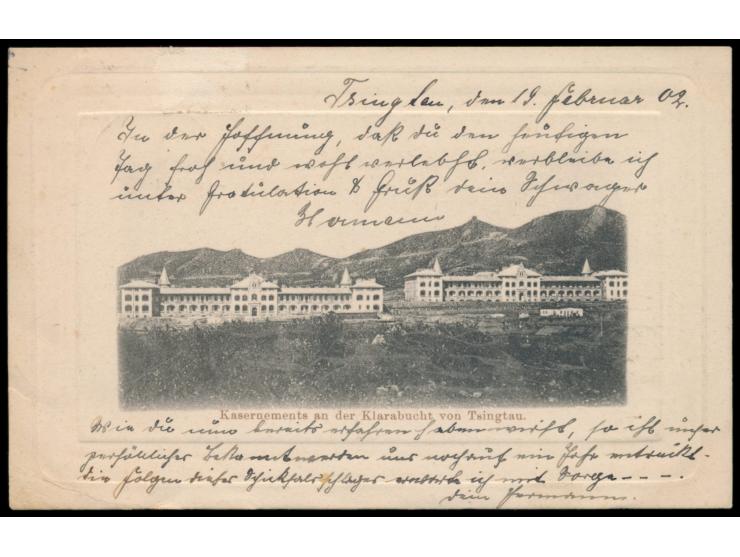 Tsingtau, den 19. Februar 02.
In der Hoffnung, daß du den heutigen
Tag froh und wohl verlebst, verbleibe ich
unter Gratulation & Gruß dein Schwager
Hermann
Kasernements an der Klarabucht von Tsingtau.
Wie du nun bereits erfahren haben wirst, so ist unser
persönliches Bekanntwerden uns noch auf ein Jahr entrückt.
die Folgen dieses Schicksalsschlages erwarte ich mit Sorge - - - .
dein Hermann.